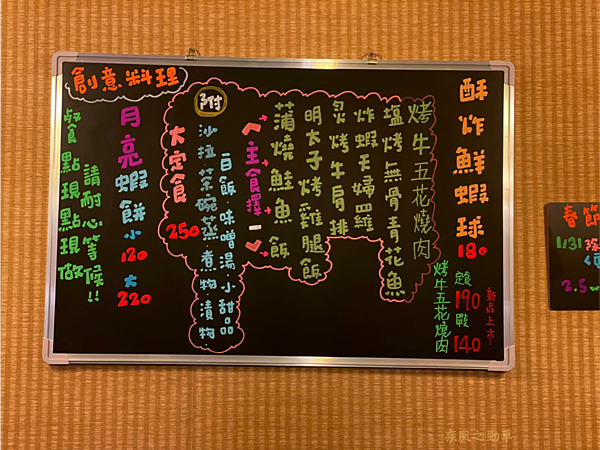 酥炸鮮蝦球 180
新品上市
烤牛五花燒肉
190
140
烤牛五花燒肉
鹽烤無骨青花魚
炸蝦天婦羅
炙烤牛肩排
明太子烤雞腿飯
蒲燒鮭魚飯
<主食擇一>
附
白飯·味噌湯·小甜品
沙拉 茶碗蒸 煮物 漬物
大定食 250
創意料理
月亮蝦餅 小 120 大 220
請耐心等候!!
餐點現點現做
春節
1/31
2.5
疾風之勁草